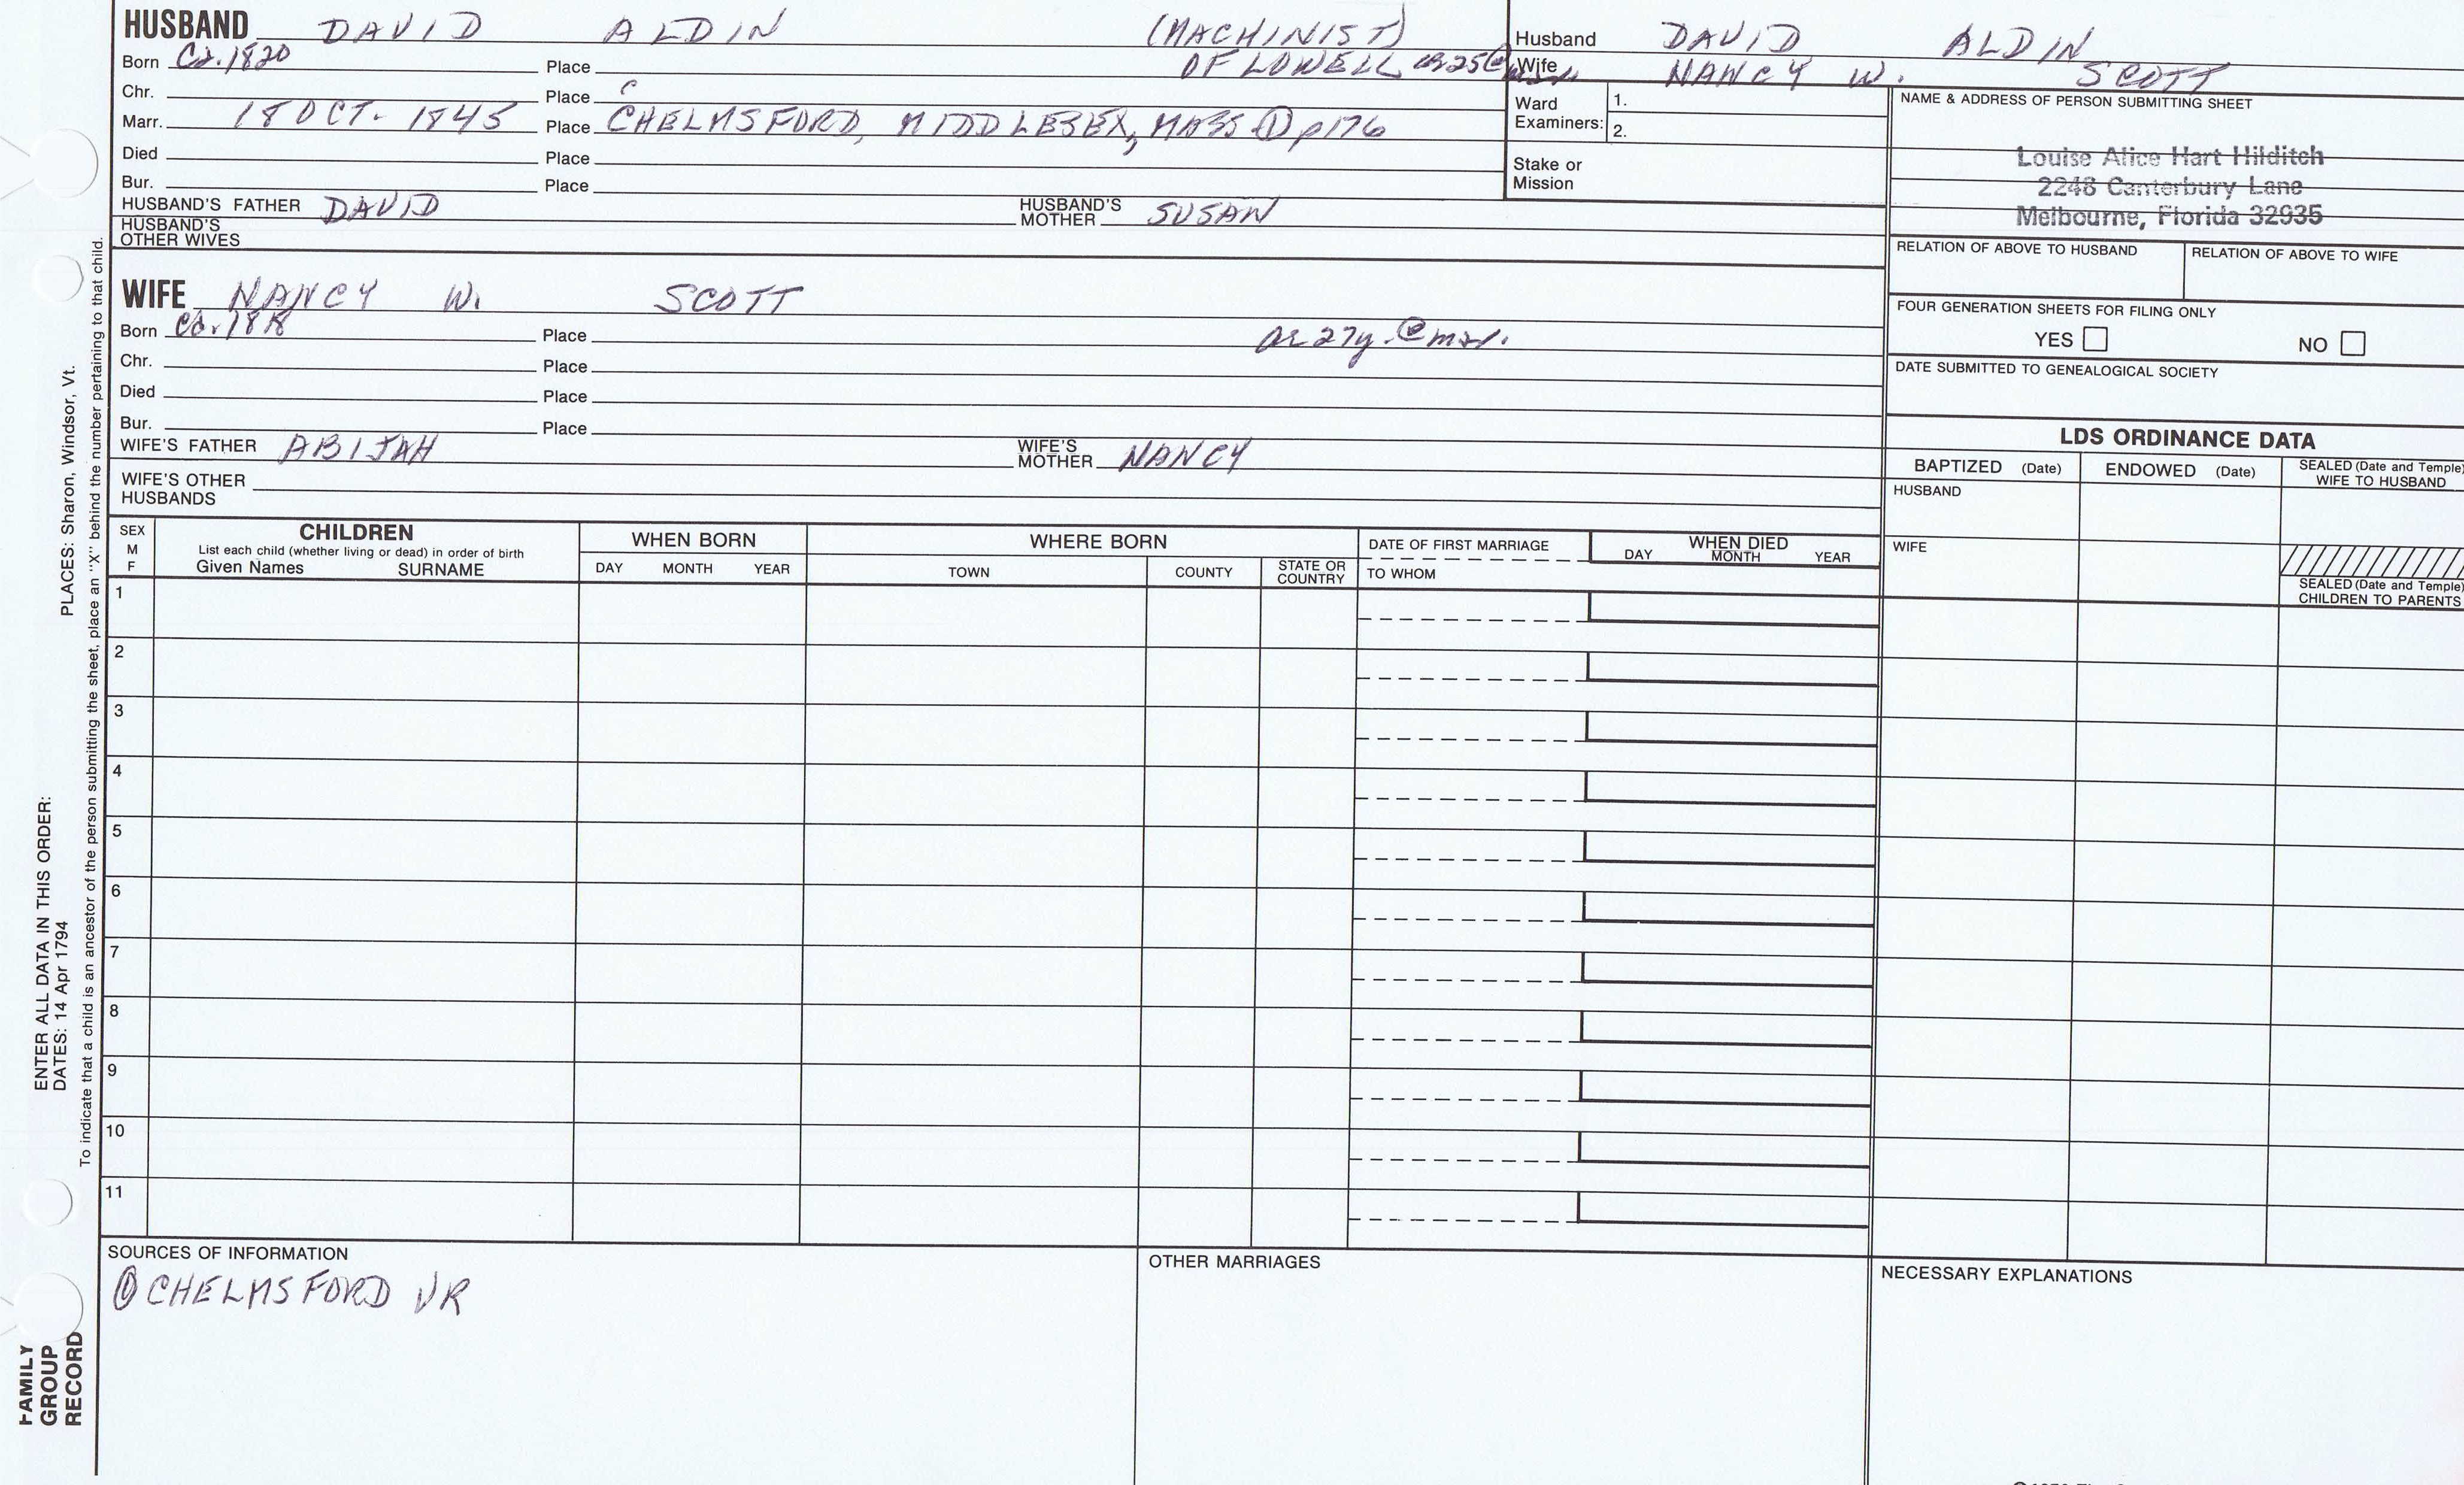 HUSBAND DAVID ALDIN (MACHINIST)
Born Ca. 1820 Place OF LOWELL ae 25 @
Chr. Place C
Marr. 18 OCT. 1845 Place CHELMSFORD, MIDDLESEX, MASS ① p176
Died Place
Bur. Place
HUSBAND'S FATHER DAVID HUSBAND'S MOTHER SUSAN
HUSBAND'S OTHER WIVES
WIFE NANCY W. SCOTT
Born Ca. 1818 Place ae 27y. @ mar.
Chr. Place
Died Place
Bur. Place
WIFE'S FATHER ABIJAH WIFE'S MOTHER NANCY
WIFE'S OTHER HUSBANDS
Husband DAVID ALDIN
Wife NANCY W. SCOTT
Ward Examiners: 1.
2.
Stake or Mission
NAME & ADDRESS OF PERSON SUBMITTING SHEET
Louise Alice Hart Hilditch
2248 Canterbury Lane
Melbourne, Florida 32935
RELATION OF ABOVE TO HUSBAND RELATION OF ABOVE TO WIFE
FOUR GENERATION SHEETS FOR FILING ONLY
YES NO
DATE SUBMITTED TO GENEALOGICAL SOCIETY
LDS ORDINANCE DATA
BAPTIZED (Date) ENDOWED (Date) SEALED (Date and Temple) WIFE TO HUSBAND
HUSBAND
WIFE
SEALED (Date and Temple) CHILDREN TO PARENTS
SEX M F
CHILDREN
List each child (whether living or dead) in order of birth
Given Names SURNAME
WHEN BORN
DAY MONTH YEAR
WHERE BORN
TOWN COUNTY STATE OR COUNTRY
DATE OF FIRST MARRIAGE
TO WHOM
WHEN DIED
DAY MONTH YEAR
1
2
3
4
5
6
7
8
9
10
11
SOURCES OF INFORMATION
① CHELMSFORD VR
OTHER MARRIAGES
NECESSARY EXPLANATIONS
ENTER ALL DATA IN THIS ORDER:
DATES: 14 Apr 1794 PLACES: Sharon, Windsor, Vt.
To indicate that a child is an ancestor of the person submitting the sheet, place an "X" behind the number pertaining to that child.
FAMILY GROUP RECORD